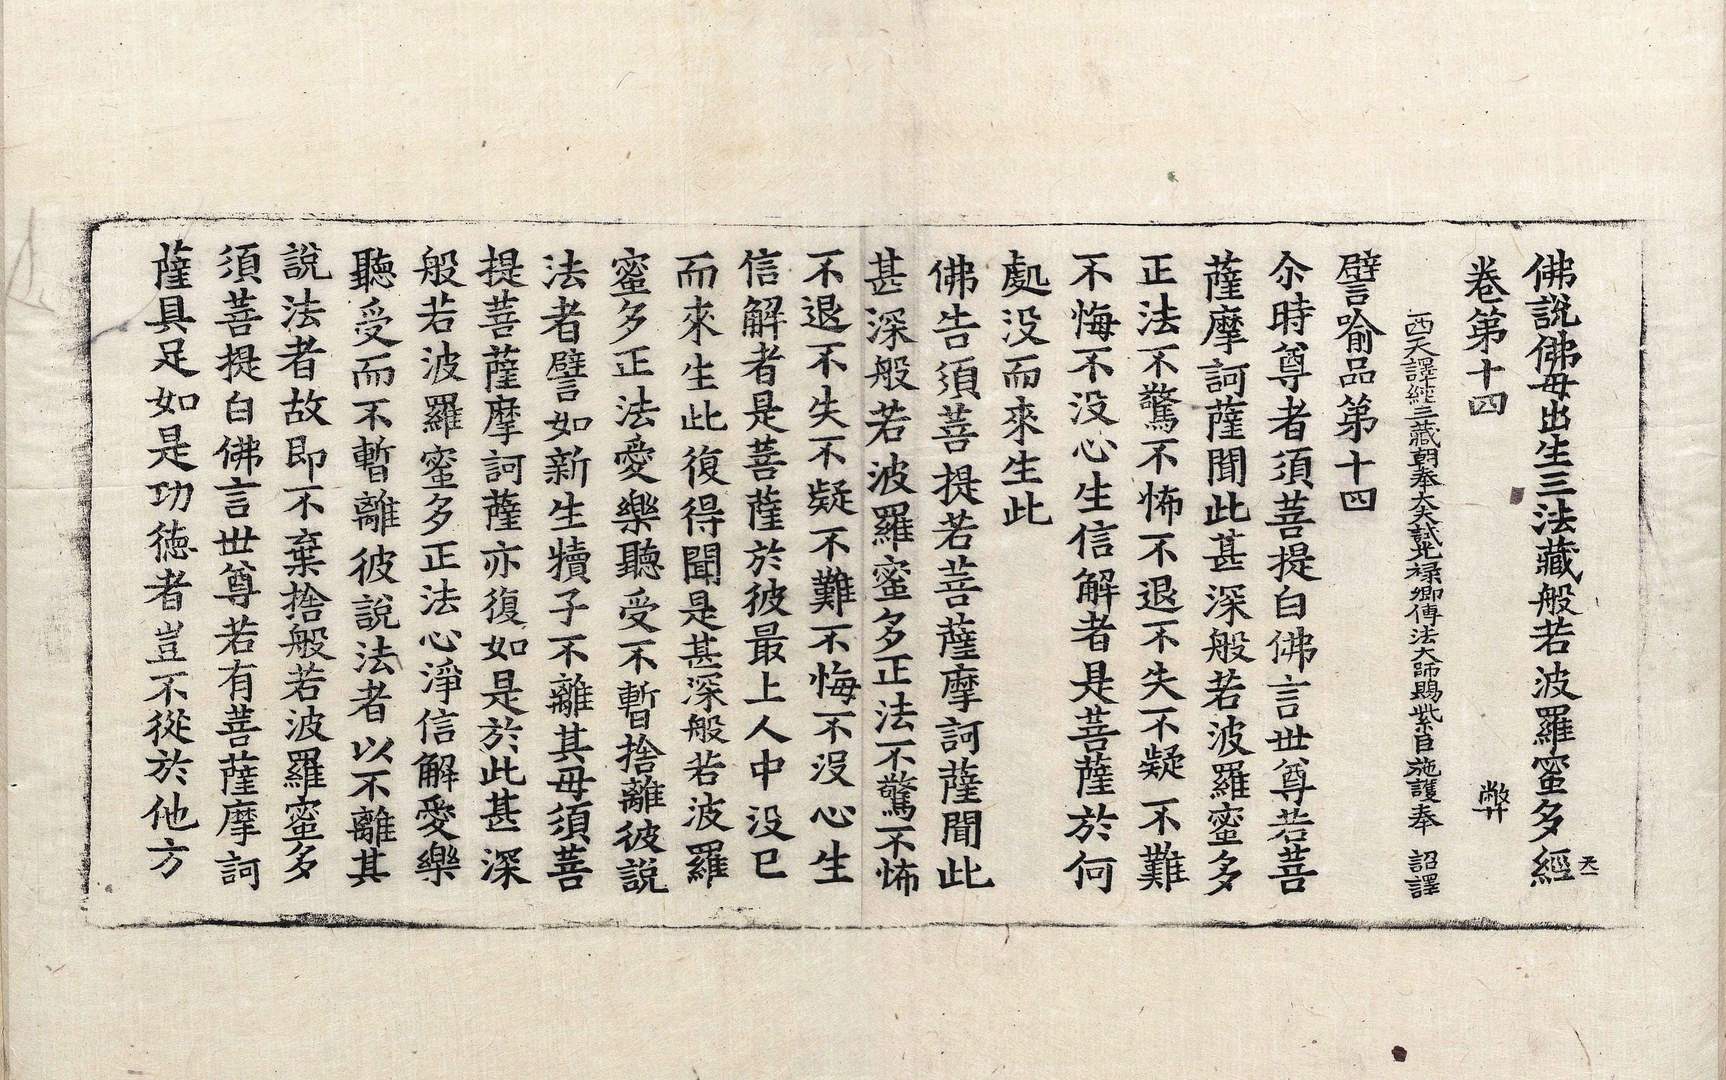 佛說佛母出生三法藏般若波羅蜜多經
卷第十四 弊
西天譯經三藏朝奉大夫試光祿卿傳法大師賜紫臣施護奉 詔譯
譬喻品第十四
尒時尊者須菩提白佛言世尊若菩
薩摩訶薩聞此甚深般若波羅蜜多
正法不驚不怖不退不失不疑不難
不悔不没心生信解者是菩薩於何
處没而來生此
佛告須菩提若菩薩摩訶薩聞此
甚深般若波羅蜜多正法不驚不怖
不退不失不疑不難不悔不没心生
信解者是菩薩於彼最上人中没已
而來生此復得聞是甚深般若波羅
蜜多正法愛樂聽受不暫捨離彼說
法者譬如新生犢子不離其母須菩
提菩薩摩訶薩亦復如是於此甚深
般若波羅蜜多正法心淨信解愛樂
聽受而不暫離彼說法者以不離其
說法者故即不棄捨般若波羅蜜多
須菩提白佛言世尊若有菩薩摩訶
薩具足如是功德者豈不從於他方